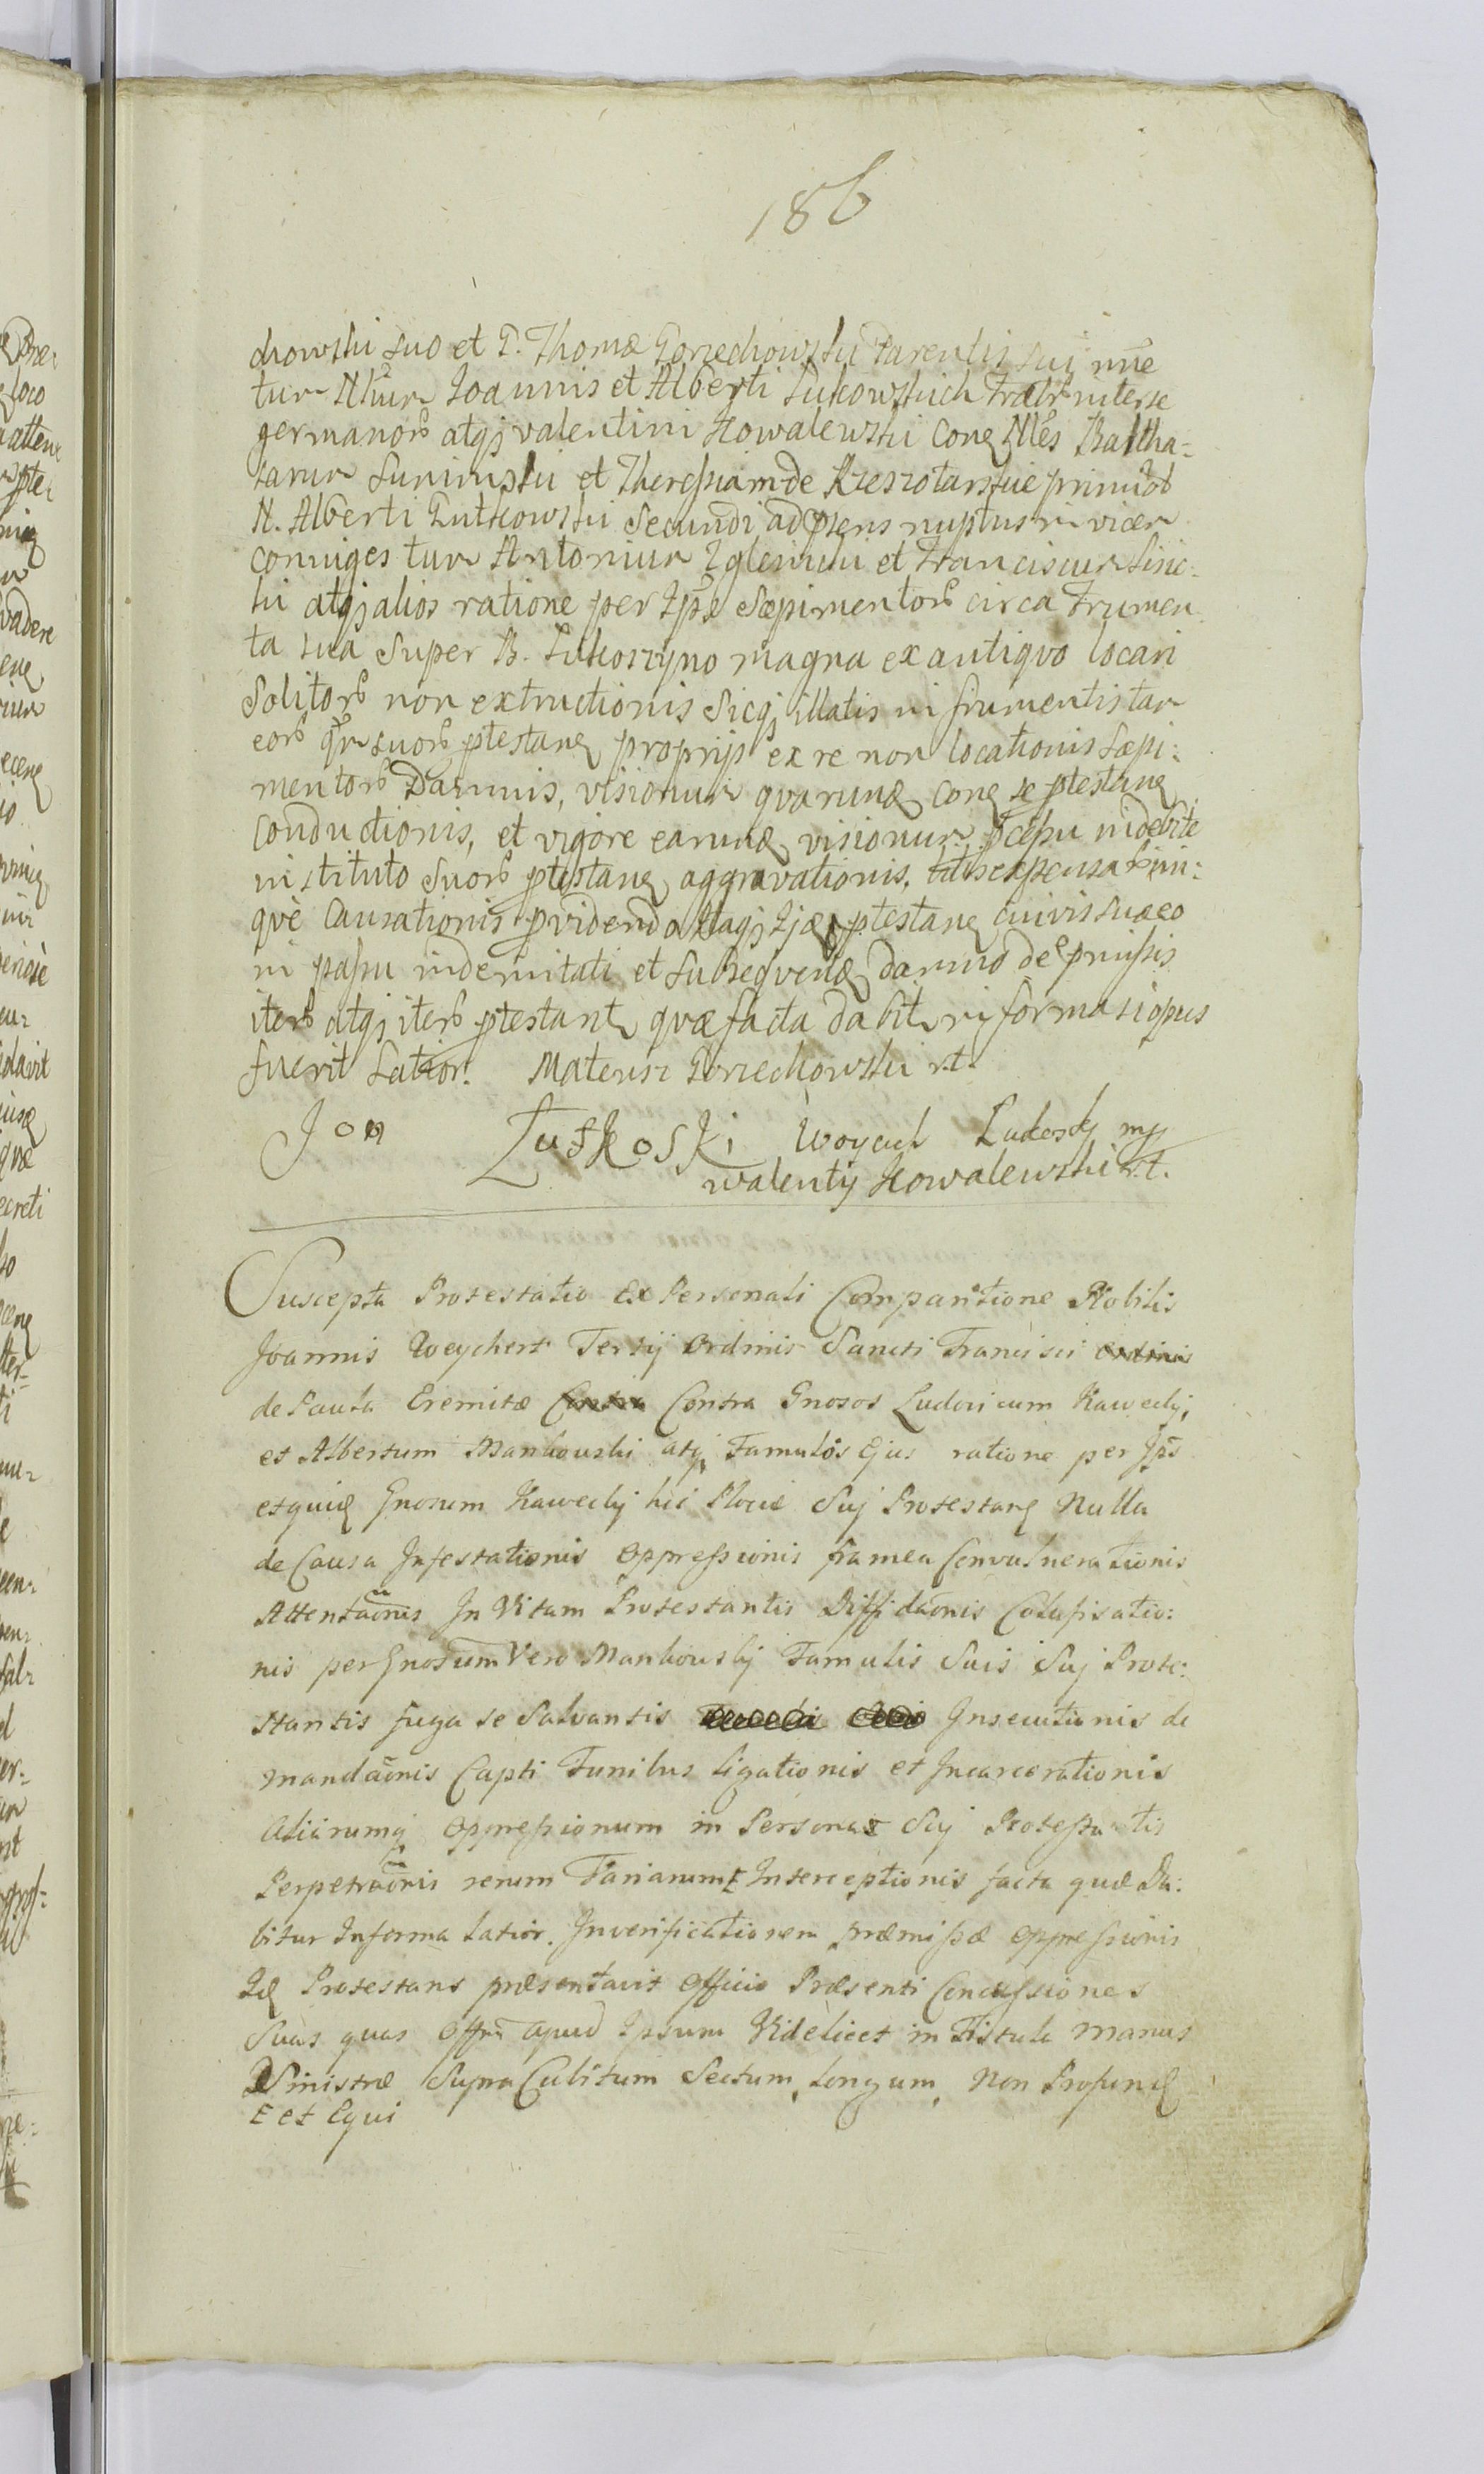 186
chowski suo et G. Thomæ Gorzechowski Parentis sui nñe
tum Nlium Joannis et Alberti Lukowskich Fratr. inter se
germanor. atq; Valentini Kowalewski con. Nles Baltha-
sarum Suninski et Theressiam de Rzeszotarskie primi
N. Alberti Gutkowski secundi ad præns nuptus in vicem
coniuges tum Antonium Zglenicki et Franciscum Lisic-
ki atq; alios ratione per Ipsos sæpimentor. circa frumen
ta sua super B. Lukoszyno magna ex antiquo locari
solitor. non extructionis sicq; illatis in frumentis tam
eor. qm suor. ptestan. proprijs ex re non locationis sæpi:
mentor. Damnis, visionum quarund. con. se ptestan.
conductionis, et vigore earund. visionum pcessu indebite
instituto suor. ptestan. aggravationis, expensar. ini:
què causationis pvidendo Itaq; ptestan. cuivis suæ eo
in passu indemnitati et subsequend. damno de præmissis
iter. atq; iter. ptestant. quæ facta dabit. in forma si opus
fuerit latior. Mateusz Gorzechowski r.t.
Jon Lutkoski Woyciech Lukosky mp
Walenty Kowalewski r.t.
Suscepta Protestatio Ex Personali Comparitione Nobilis
Joannis Weychert Tertij Ordinis Sancti Francisci Ordinis
de Paula Eremitæ Contra Contra Gnosos Ludovicum Kawecky,
et Albertum Mankowski atq; Famulos Ejus ratione per Ips
etquid. Gnosum Kawecky hic Plociæ Suj Protestan. Nulla
de Causa Infestationis oppressionis framea Convulnerationis
Attentãonis In Vitam Protestantis Diffidãonis Colaphisatio:
nis per Gnosum Vero Mankowsky Famulis Suis Suj Prote:
stantis fuga se Salvantis Insecutionis de
mandãonis Capti Funibus Ligationis et Incarcerationis
Aliarumq; oppressionum in Persona Suj Protestantis
Perpetrãonis rerum Variarum E Interceptionis facta quæ Da:
bitur Informa Latior. Inverificationem præmissæ oppressionis
Id. Protestans præsentavit Officio Præsenti Concussiones
Suas quas Offm apud Ipsum Videlicet in Fistula manus
Sinistræ Supra Cubitum Sectum, Longum, Non Profund.
E et Equi